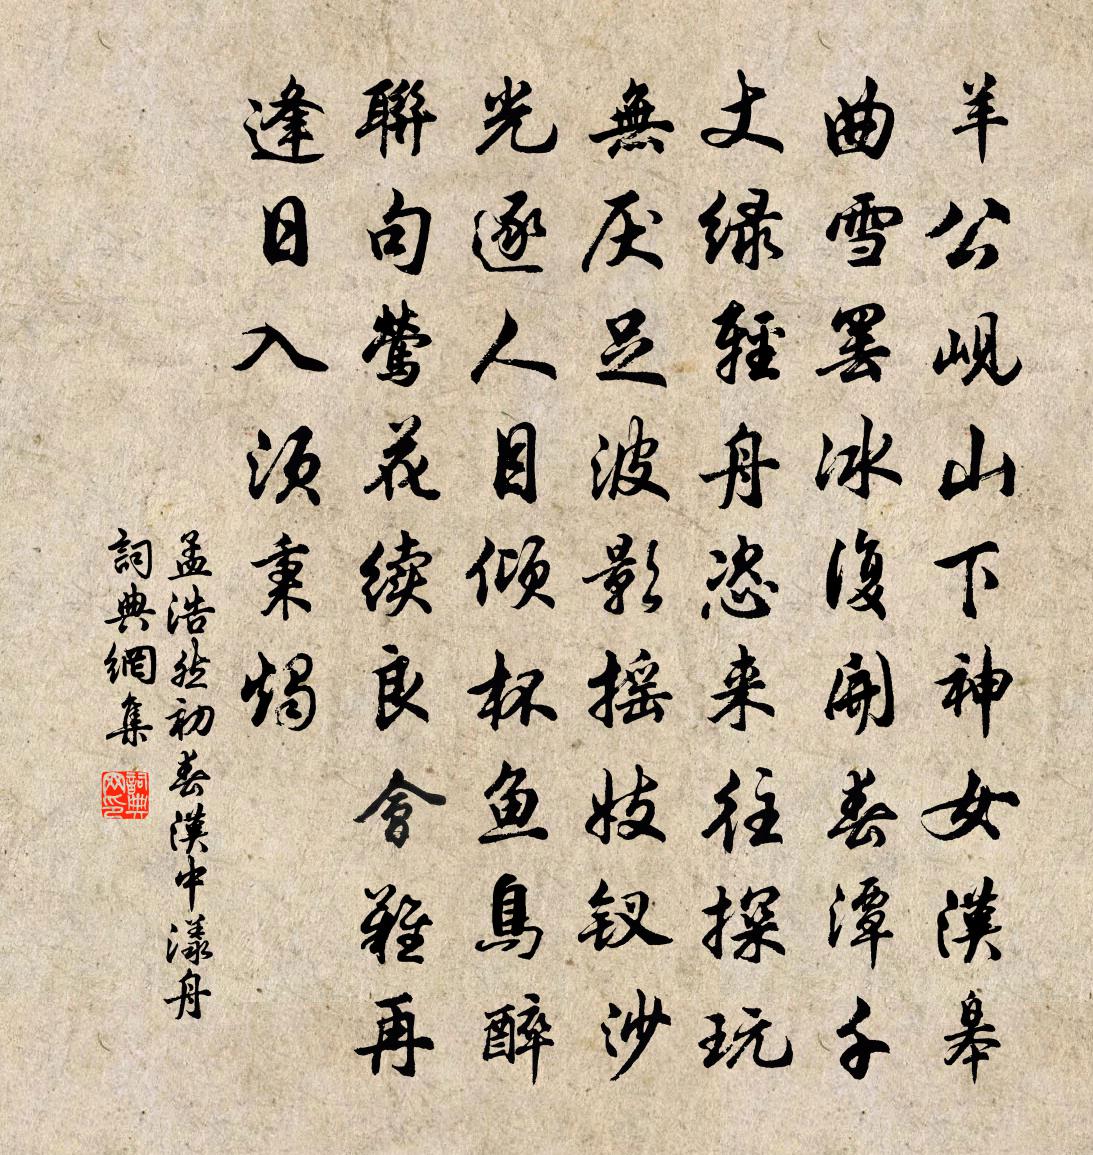 羊公峴山下神女漢皋
曲雪罷冰復開春潭千
丈緑輕舟恣来往探玩
無厌足波影摇妓钗沙
光逐人目倾杯鱼鳥醉
聯句鶯花续良會難再
逢日入须秉燭
孟浩然初春漢中漾舟
詞典網集
詞典网印